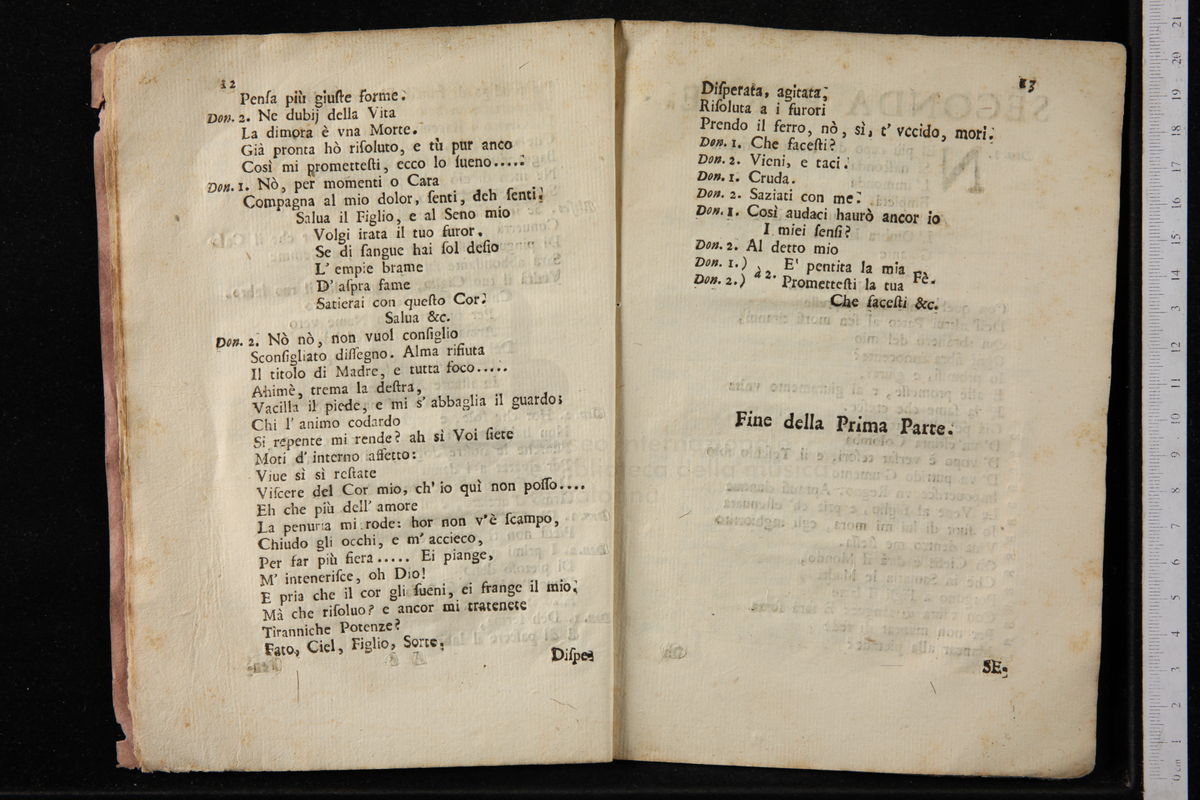 12
Penſa più giuſte forme.
Don. 2. Ne dubij della Vita
La dimora è vna Morte.
Già pronta hò riſoluto, e tù pur anco
Così mi prometteſti, ecco lo ſueno....:
Don. 1. Nò, per momenti o Cara
Compagna al mio dolor, ſenti, deh ſenti:
Salua il Figlio, e al Seno mio
Volgi irata il tuo furor.
Se di ſangue hai ſol deſio
L' empie brame
D' aſpra fame
Satierai con queſto Cor:
Salua &c.
Don. 2. Nò nò, non vuol conſiglio
Sconſigliato diſſegno. Alma rifiuta
Il titolo di Madre, e tutta foco.....
Ahimè, trema la deſtra,
Vacilla il piede, e mi s' abbaglia il guardo;
Chi l' animo codardo
Si repente mi rende? ah sì Voi ſiete
Moti d' interno affetto:
Viue sì sì reſtate
Viſcere del Cor mio, ch' io quì non poſſo....
Eh che più dell' amore
La penuria mi rode: hor non v'è ſcampo,
Chiudo gli occhi, e m' accieco,
Per far più fiera..... Ei piange,
M' inteneriſce, oh Dio!
E pria che il cor gli ſueni, ei frange il mio:
Mà che riſoluo? e ancor mi tratenete
Tiranniche Potenze?
Fato, Ciel, Figlio, Sorte,
Diſpe-
13
Diſperata, agitata,
Riſoluta a i furori
Prendo il ferro, nò, sì, t' vccido, mori.
Don. 1. Che faceſti?
Don. 2. Vieni, e taci.
Don. 1. Cruda.
Don. 2. Saziati con me:
Don. 1. Così audaci haurò ancor io
I miei ſenſi?
Don. 2. Al detto mio
Don. 1.) a 2. E' pentita la mia Fè.
Don. 2.) Prometteſti la tua
Che faceſti &c.
Fine della Prima Parte.
SE-